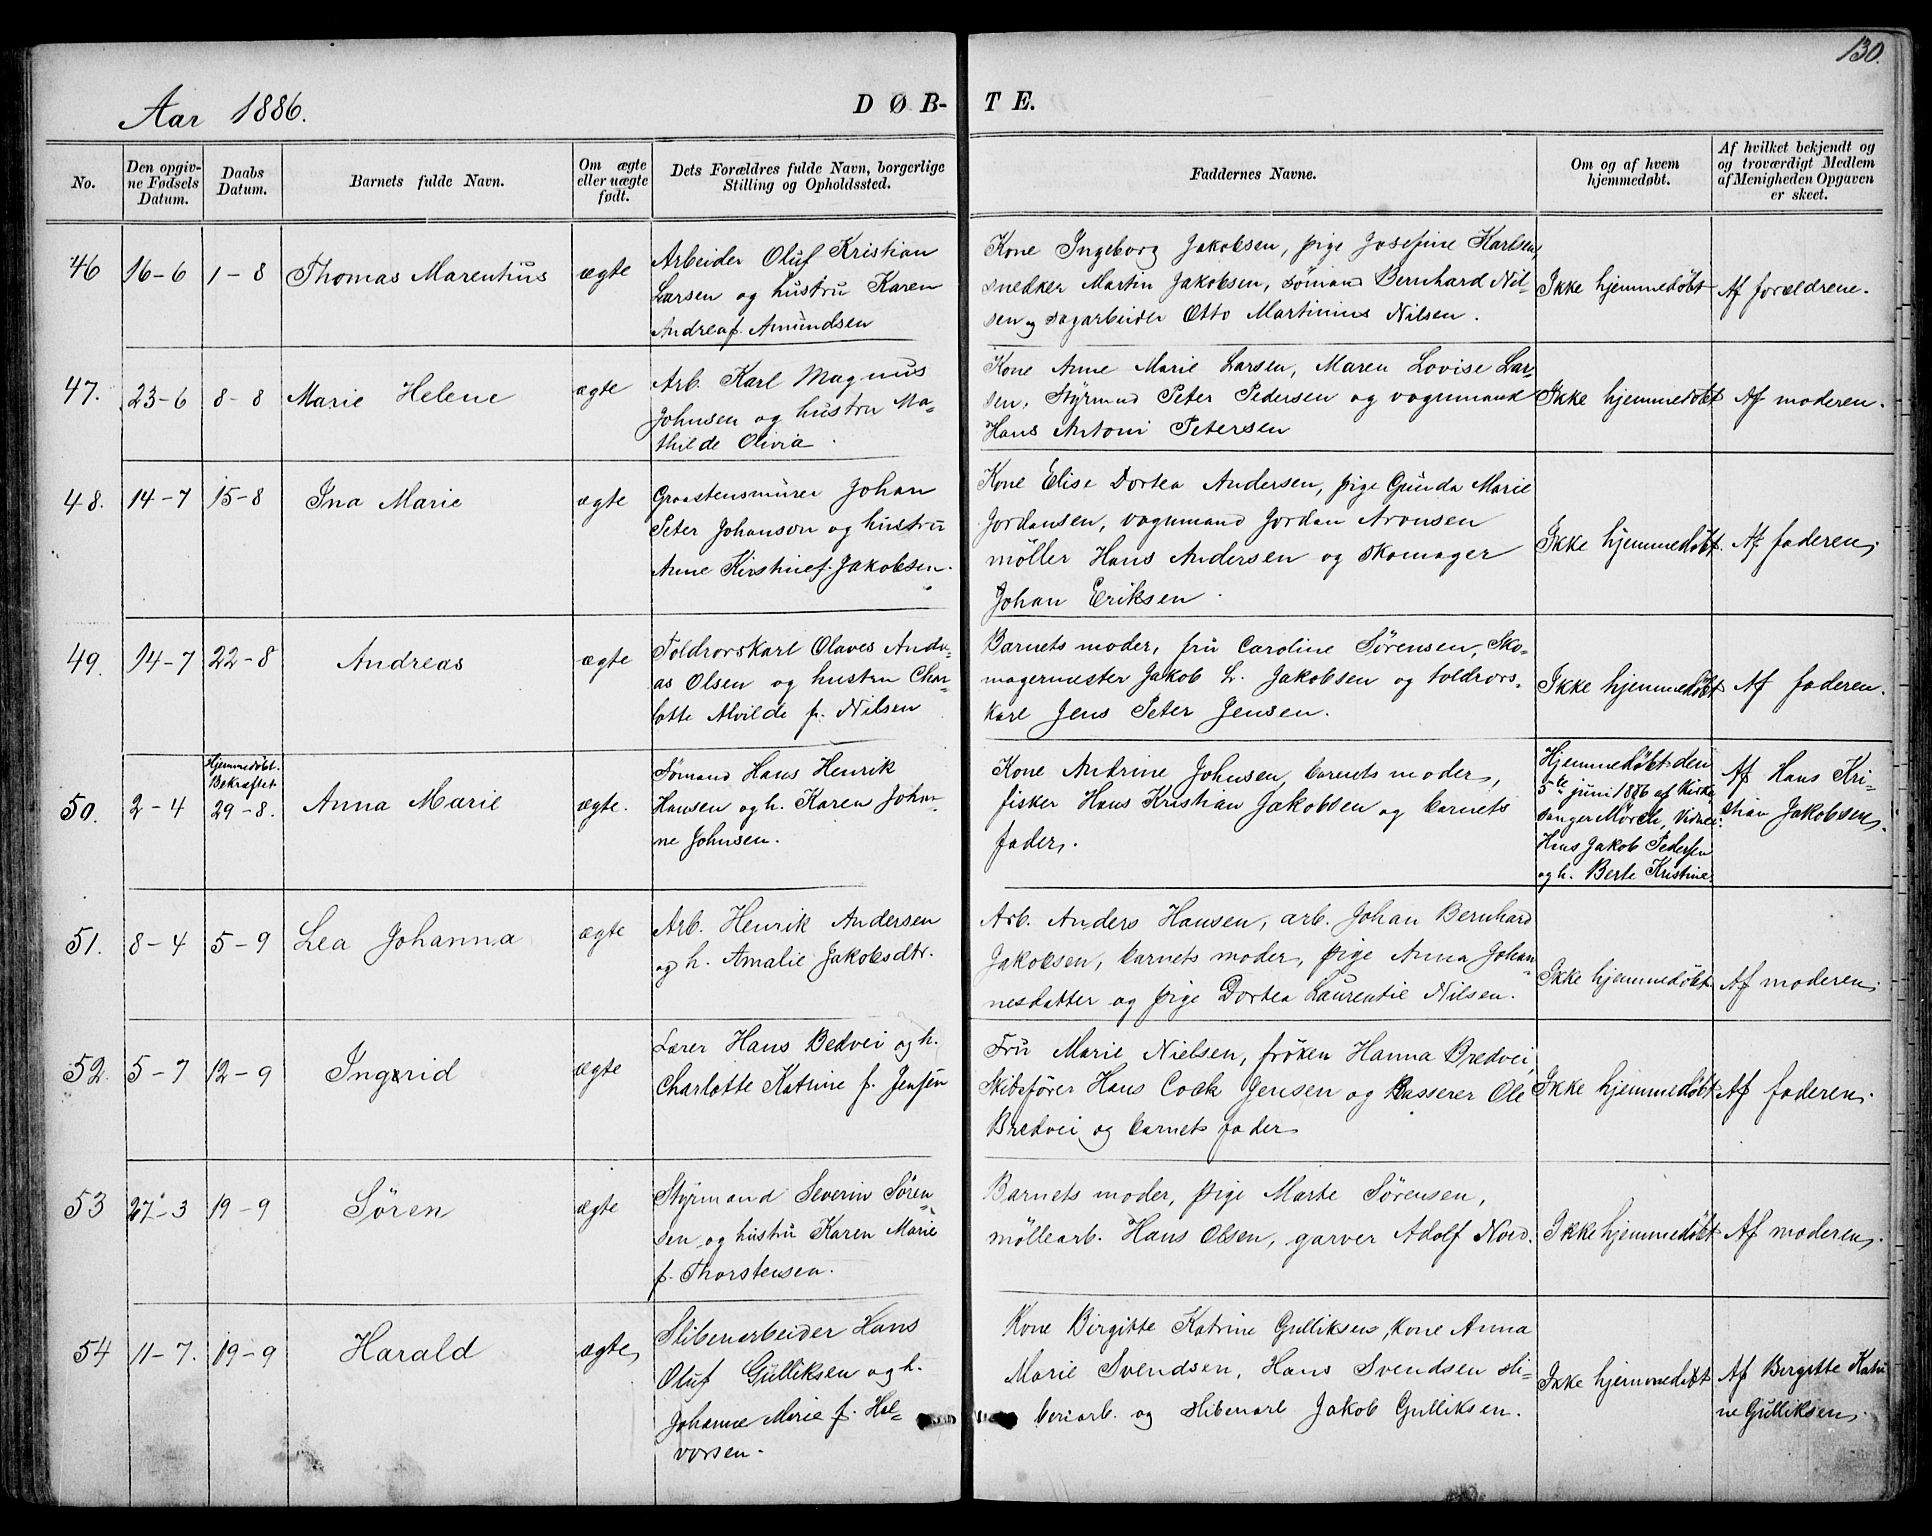 130.
Aar 1886.
DØB-
TE.
No.
Den opgiv-
ne Fødsels
Datum.
Daabs
Datum.
Barnets fulde Navn.
Om ægte
eller uægte
født.
Dets Forældres fulde Navn, borgerlige
Stilling og Opholdssted.
Faddernes Navne.
Om og af hvem
hjemmedøbt.
Af hvilket bekjendt og
og troværdigt Medlem
af Menigheden Opgaven
er skeet.
46 16-6 1-8 Thomas Marentius ægte
Arbeider Oluf Kristian
Larsen og hustru Karen
Andrea f. Amundsen
Kone Ingeborg Jakobsen, pige Josefine Karlsen,
snedker Martin Jakobsen, sømand Bernhard Nil-
sen og sagarbeider Otto Martinius Nilsen.
Ikke hjemmedøbt
Af forældrene.
47. 23-6 8-8 Marie Helene ægte
Arb. Karl Magnus
Johnsen og hustru Ma-
thilde Olivia.
Kone Anne Marie Larsen, Maren Lovise Lar-
sen, Styrmand Peter Pedersen og vognmand
Hans Antoni Petersen
Ikke hjemmedøbt
Af moderen.
48. 14-7 15-8 Ina Marie ægte
Graastensmurer Johan
Peter Johanson og hustru
Anne Kirstine f. Jakobsen.
Kone Elise Dortea Andersen, pige Gunda Marie
Jordansen, vognmand Jordan Aronsen
møller Hans Andersen og skomager
Johan Eriksen.
Ikke hjemmedøbt.
Af faderen.
49. 14-7 22-8 Andreas ægte
Toldrorskarl Olaves Andre-
as Olsen og hustru Char-
lotte Alvilde f. Nilsen
Barnets moder, fru Caroline Sørensen, Sko-
magermester Jakob L. Jakobsen og toldrors-
karl Jens Peter Jensen.
Ikke hjemmedøbt
Af faderen.
50. 2-4
Hjemmedøbt.
Bekræftet
29-8.
Anna Marie ægte.
Sømand Hans Henrik
Hansen og h. Karen Johan-
ne Johnsen.
Kone Antrine Johnsen, barnets moder,
fisker Hans Kristian Jakobsen og barnets
fader.
Hjemmedøbt den
5te juni 1886 af Kirke
sanger Mørch, Vidner:
Hans Jakob Pedersen
og h. Berte Kristine.
Af Hans Kri-
stian Jakobsen.
51. 8-4 5-9 Lea Johanna ægte
Arb. Henrik Andersen
og h. Amalie Jakobsdtr.
Arb. Anders Hansen, arb. Johan Bernhard
Jakobsen, barnets moder, pige Anna Johan-
nesdatter og pige Dortea Laurentie Nilsen.
Ikke hjemmedøbt
Af moderen.
52. 5-7 12-9 Ingrid ægte
Lærer Hans Bedvei og h.
Charlotte Katrine f. Jensen
Fru Marie Nielsen, frøken Hanna Bredvei,
Skibsfører Hans Cock Jensen og Kasserer Ole
Bredvei og barnets fader
Ikke hjemmedøbt
Af faderen.
53 27-3 19-9 Søren ægte
Styrmand Severin Søren-
sen og hustru Karen Marie
f. Thorstensen.
Barnets moder, pige Marte Sørensen,
møllearb. Hans Olsen, garver Adolf Nord.
Ikke hjemmedøbt
Af moderen.
54 11-7. 19-9 Harald ægte
Sliberiarbeider Hans
Oluf Gulliksen og h.
Johanne Marie f. Hal-
vorsen.
Kone Birgitte Katrine Gulliksen, Kone Anna
Marie Svendsen, Hans Svendsen sli-
beriarb. og sliberiarb Jakob Gulliksen.
Ikke hjemmedøbt
Af Birgitte Katri
ne Gulliksen.